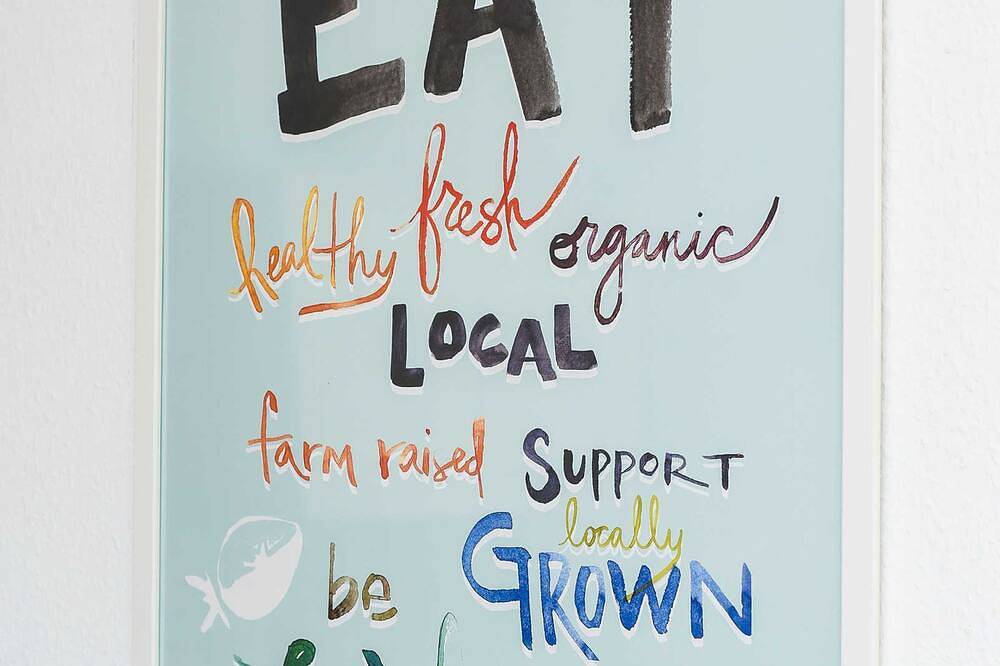 EAT
healthy fresh organic
LOCAL
farm raised SUPPORT
locally
be GROWN